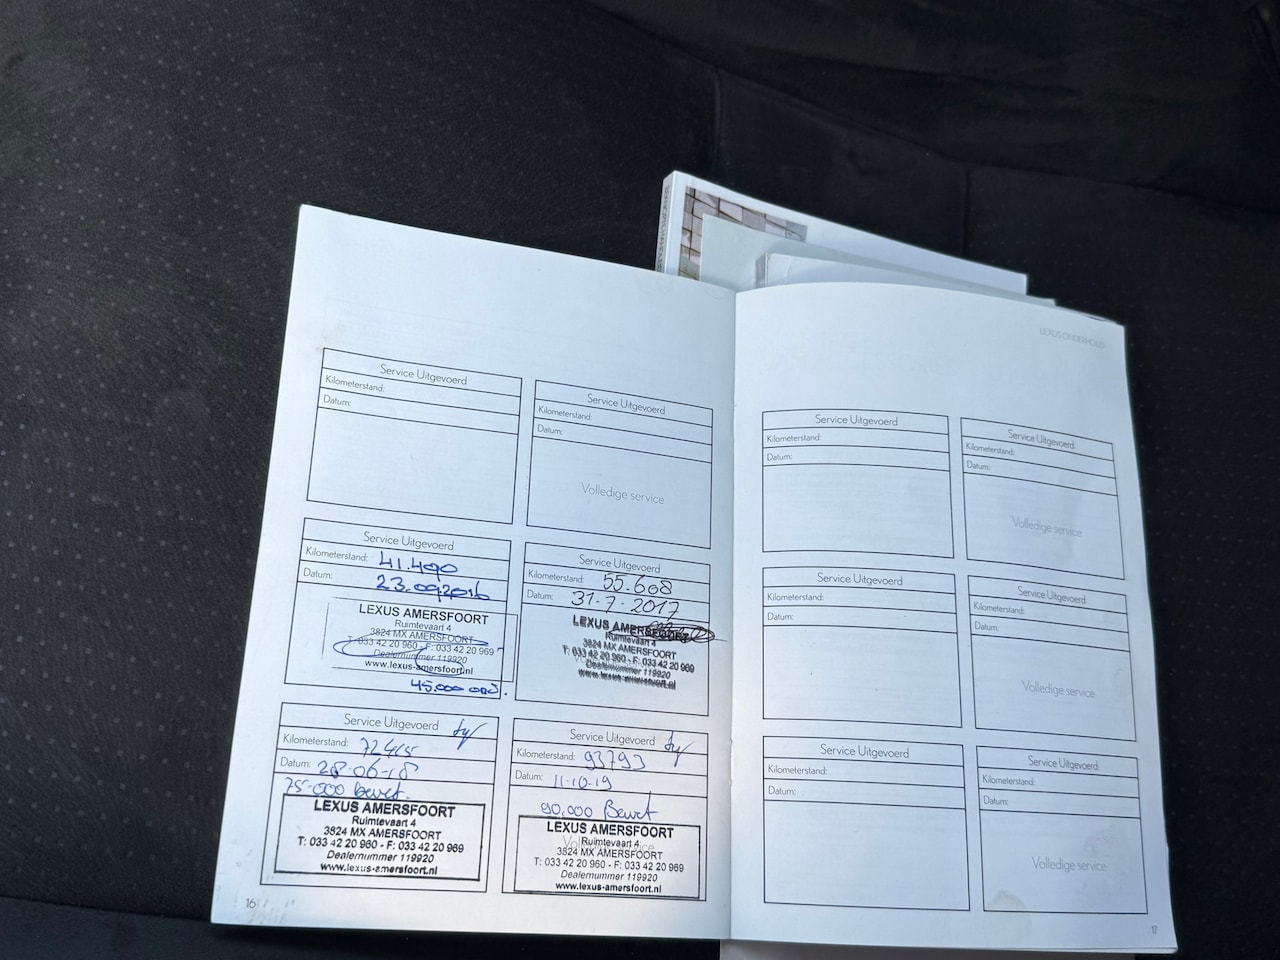 LEXUS ONDERHOUD
Service Uitgevoerd
Kilometerstand:
Datum:
Service Uitgevoerd
Kilometerstand:
Datum:
Volledige service
Service Uitgevoerd
Kilometerstand: 41.490
Datum: 23.09.2016
LEXUS AMERSFOORT
Ruimtevaart 4
3824 MX AMERSFOORT
T: 033 42 20 960 - F: 033 42 20 969
Dealernummer 119920
www.lexus-amersfoort.nl
45.000
Service Uitgevoerd
Kilometerstand: 55.608
Datum: 31-7-2017
LEXUS AMERSFOORT
Ruimtevaart 4
3824 MX AMERSFOORT
T: 033 42 20 960 - F: 033 42 20 969
Dealernummer 119920
www.lexus-amersfoort.nl
Service Uitgevoerd
Kilometerstand: 72415
Datum: 28-06-18
75-000 beurt.
LEXUS AMERSFOORT
Ruimtevaart 4
3824 MX AMERSFOORT
T: 033 42 20 960 - F: 033 42 20 969
Dealernummer 119920
www.lexus-amersfoort.nl
Service Uitgevoerd
Kilometerstand: 93793
Datum: 11-10-19
90.000 Beurt
Volledige service
LEXUS AMERSFOORT
Ruimtevaart 4
3824 MX AMERSFOORT
T: 033 42 20 960 - F: 033 42 20 969
Dealernummer 119920
www.lexus-amersfoort.nl
16
Service Uitgevoerd
Kilometerstand:
Datum:
Service Uitgevoerd
Kilometerstand:
Datum:
Volledige service
Service Uitgevoerd
Kilometerstand:
Datum:
Service Uitgevoerd
Kilometerstand:
Datum:
Volledige service
Service Uitgevoerd
Kilometerstand:
Datum:
Service Uitgevoerd
Kilometerstand:
Datum:
Volledige service
17